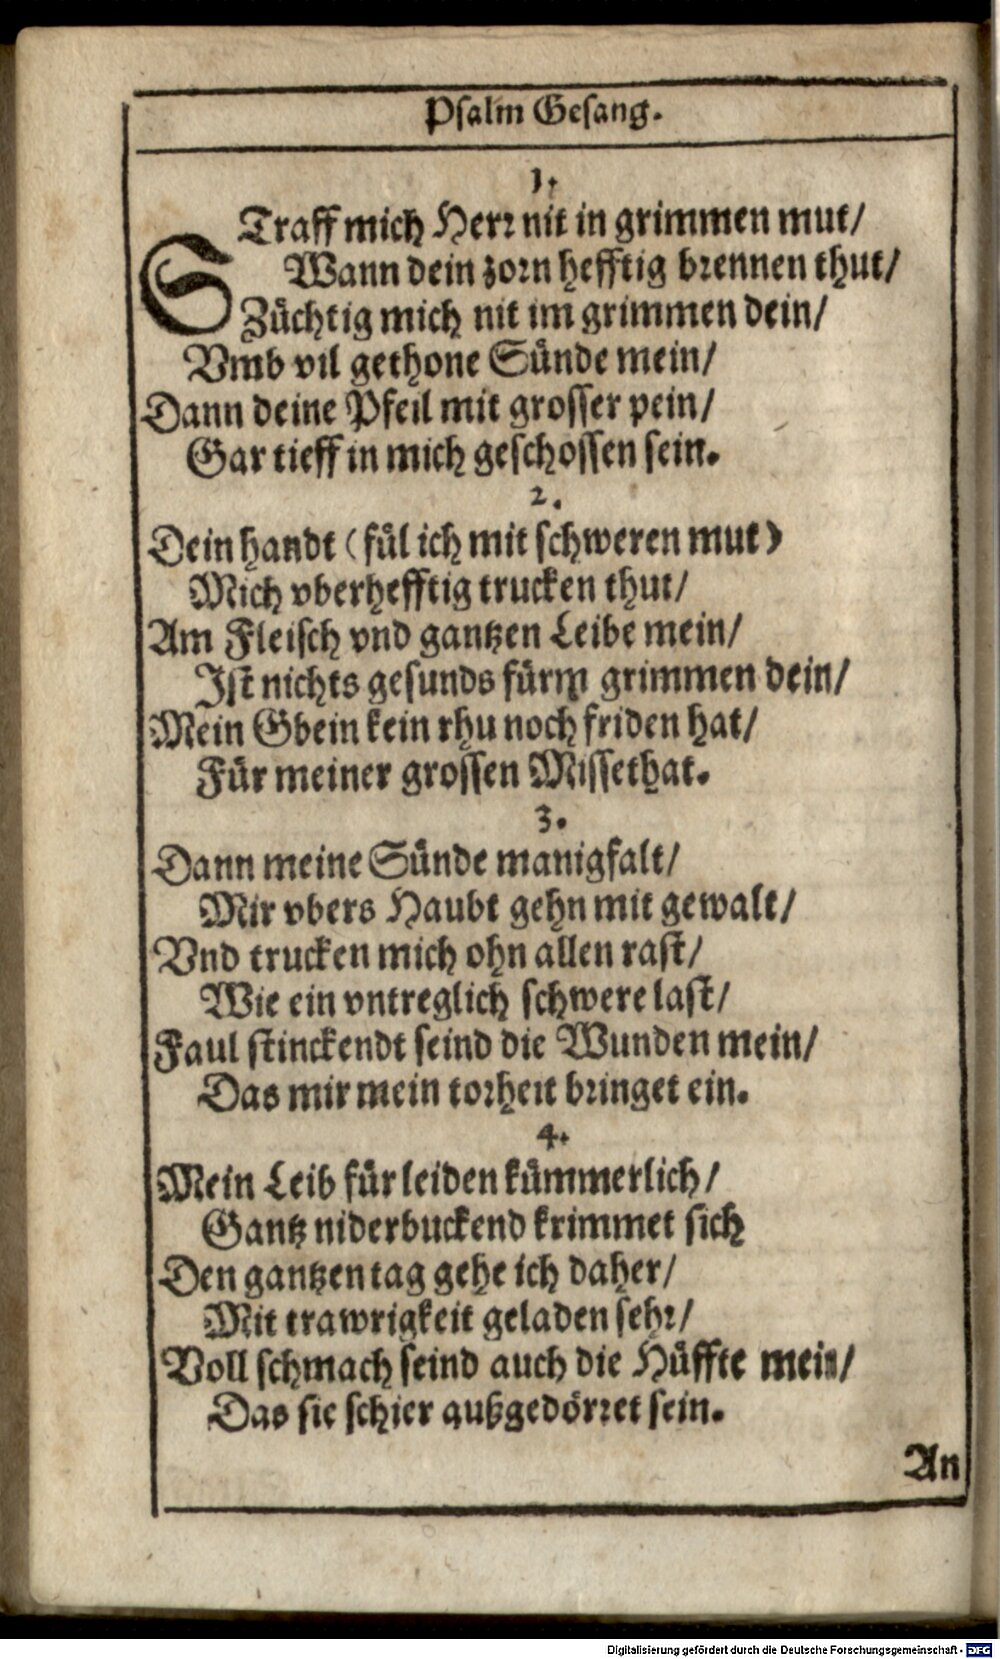 Psalm Gesang.
1.
STraff mich Herr nit in grimmen mut/
Wann dein zorn hefftig brennen thut/
Züchtig mich nit im grimmen dein/
Vmb vil gethone Sünde mein/
Dann deine Pfeil mit grosser pein/
Gar tieff in mich geschossen sein.
2.
Dein handt (fül ich mit schweren mut)
Mich vberhefftig trucken thut/
Am Fleisch vnd gantzen Leibe mein/
Ist nichts gesunds fürm grimmen dein/
Mein Gbein kein rhu noch friden hat/
Für meiner grossen Missethat.
3.
Dann meine Sünde manigfalt/
Mir vbers Haubt gehn mit gewalt/
Vnd trucken mich ohn allen rast/
Wie ein vntreglich schwere last/
Faul stinckendt seind die Wunden mein/
Das mir mein torheit bringet ein.
4.
Mein Leib für leiden kümmerlich/
Gantz niderbuckend krimmet sich
Den gantzen tag gehe ich daher/
Mit trawrigkeit geladen sehr/
Voll schmach seind auch die Hüffte mein/
Das sie schier außgedörret sein.
An
Digitalisierung gefördert durch die Deutsche Forschungsgemeinschaft - DFG